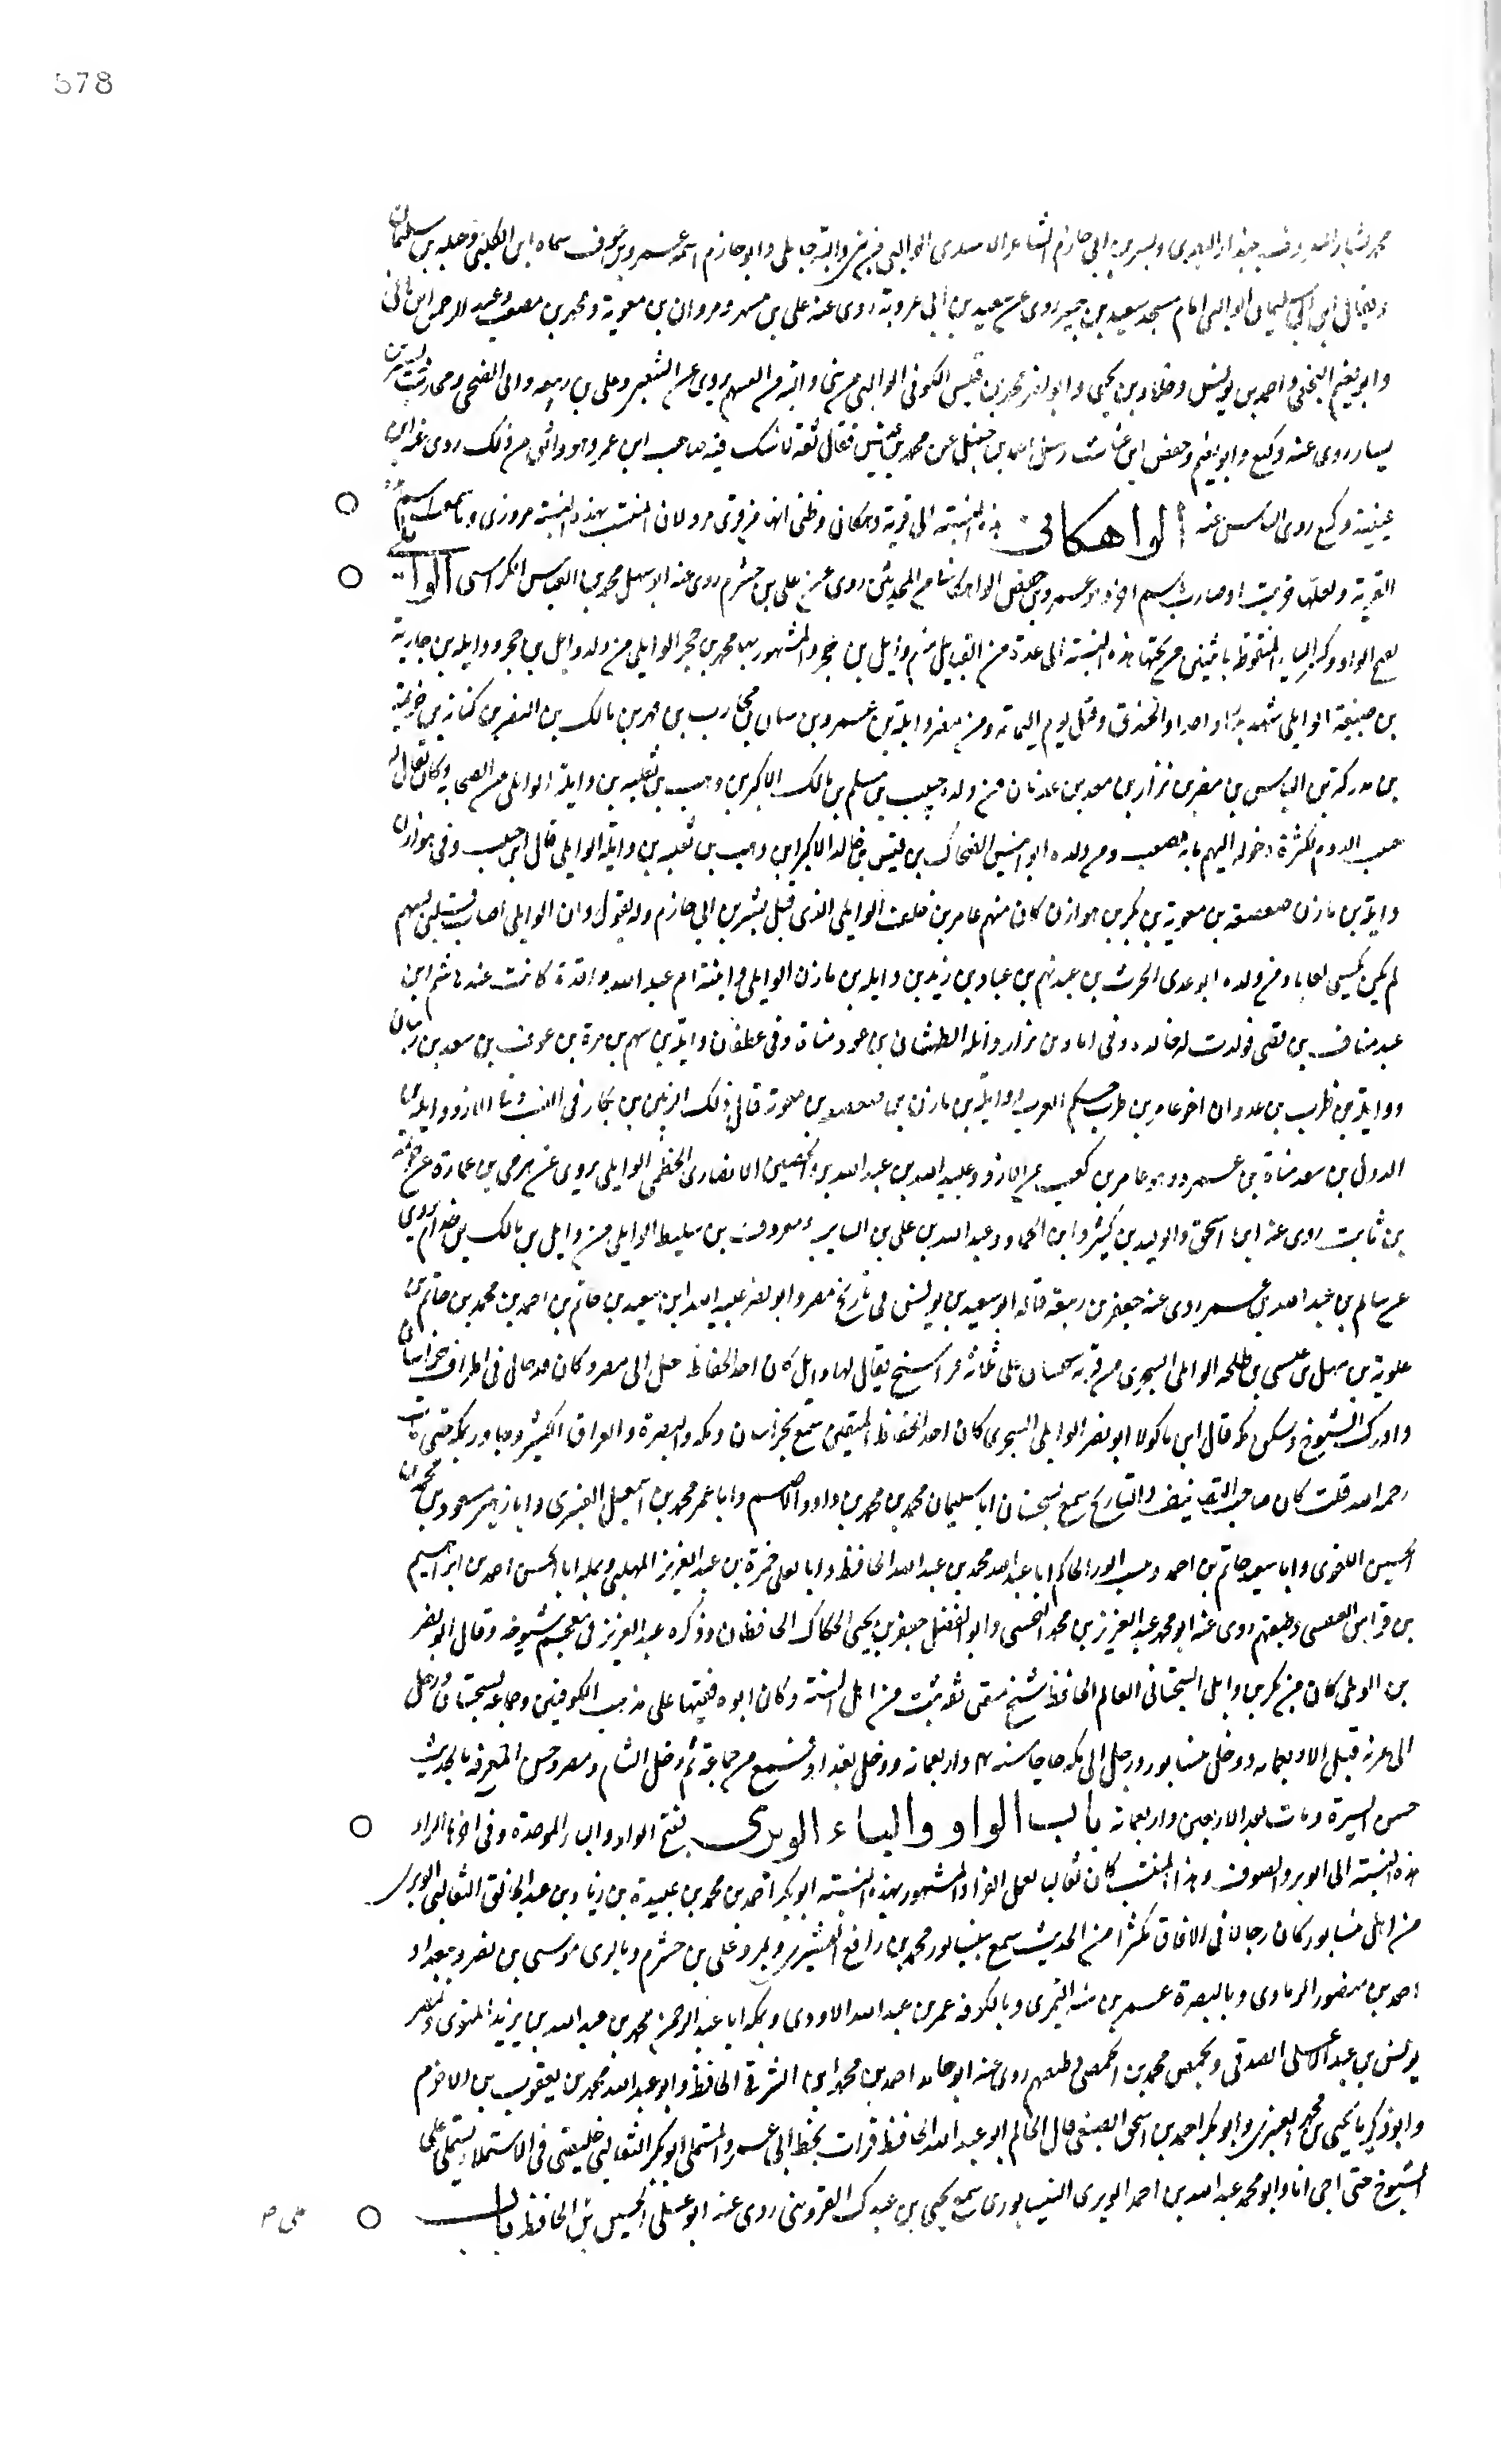 578
محمد بن بشار المعروف ببندار العبدي وبشر بن ابي حازم الشاعر الاسدي الوالبي من بني والبة جاهلي وابو حازم اسمه عمرو بن عوف سماه ابن الكلبي وحبله بن سليمان
ابن ابي سليمان الوالبي امام مسجد سعيد بن جبير روى عن سعيد بن ابي عروبة روى عنه علي بن مسهر ومروان بن معوية ومحمد بن مصعب وعبد الرحمن ابن هاني
وابو نعيم النخعي واحمد بن يونس وخلاد بن يحيى وابو نصر محمد بن قيس الكوفي الوالبي من بني والبة من انفسهم يروي عن الشعبي وعلي بن ربيعة وابي الضحى ومحارب بشير بن
يسار روى عنه وكيع وابو نعيم وحفص ابن غياث وسئل احمد بن حنبل عن محمد بن قيس فقال ثقة لا شك فيه صاحب ابن عمر وهو اوثق من ذلك روى عنه ابن
عيينة وكيع روى الناس عنه الواهكاني هذه النسبة الى قرية واهكان وظني انها من قرى مرو لان المنتسب بهذه النسبة مروزي وما سمعت باسم هذه
القرية ولعلها خربت او صارت باسم اخر وهو عمرو بن حفص الواهكاني من المحدثين روى عن علي بن خشرم روى عنه ابو سهل محمد بن العباس الكرابيسي الوايلي
بفتح الواو وكسر الياء المنقوطة باثنتين من تحتها هذه النسبة الى عدة من القبايل منهم وايل بن حجر والمشهور بها محمد بن حجر الوايلي من ولد وايل بن حجر ووايلة بن جارية
بن ضبيعة الوايلي شهد بدرا واحدا والخندق وقتل يوم اليمامة ومن مضر وايلة بن عمرو بن سان بن محارب بن فهر بن مالك بن النضر بن كنانة بن خزيمة
بن مدركة بن الياس بن مضر بن نزار بن معد بن عدنان من ولده حبيب بن مسلم بن مالك الاكبر بن وهب بن ثعلبه بن وايلة الوايلي من الصحابة وكان يقال له
حبيب الروم لكثرة دخوله اليهم ومن ولده ابو انيس الضحاك بن قيس بن خالد الاكبر ابن وهب بن ثعلبه بن وايلة الوايلي قال ابن حبيب وفي هوازن
وايلة بن مازن بن صعصعة بن معوية بن بكر بن هوازن كان منهم عامر بن خلف الوايلي الذي قتل بشر بن ابي حازم وله يقول وان الوايلي اصاب قلبي بسهم
لم يكن يكسى لغابا ومن ولده ابو عدي الحرث بن عبد نهم بن عباد بن زيد بن وايلة بن مازن الوايلي وابنته ام عبد الله واقدة كانت عند هاشم ابن
عبد مناف بن قصي فولدت له خالدة وفي اياد بن نزار وايلة بن الطمثان بن عوذ مناة وفي غطفان وايلة بن سهم بن مرة بن عوف بن سعد بن ذبيان
ووايلة بن ظرب بن عدوان اخو عامر بن ظرب حكيم العرب ووايلة بن مازن بن صعصعة بن معوية قال ذلك الزبير بن بكار في النسب وفي الازد وايلة بن
الدول بن سعد مناة بن عمرو وهو عامر بن كعب من الازد وعبيد الله بن عبد الله بن الحصين الانصاري الخطمي الوايلي يروي عن هرمي بن عمارة عن خزيمة
بن ثابت روى عنه ابن اسحق والوليد بن كثير وابن الهاد وعبد الله بن علي بن السايب ومعروف بن سليط الوايلي من وايل بن مالك بن جذام يروي
عن سالم بن عبد الله بن عمر روى عنه جعفر بن ربيعة قاله ابو سعيد بن يونس في تاريخ مصر وابو نصر عبيد الله ابن سعيد بن حاتم بن احمد بن محمد بن حاتم بن
علوية بن سهل بن عيسى بن طلحة الوايلي السجزي من قرية سجستان على ثلاثة فراسخ يقال لها وايل كان احد الحفاظ رحل الى مصر وكان قد جال في اطراف خراسان
وادرك الشيوخ وسكن مكة قال ابن ماكولا ابو نصر الوايلي السجزي كان احد الحفاظ المتقنين سمع بخراسان ومكة والبصرة والعراق الكثير وجاور بمكة حتى مات
رحمه الله قلت كان صاحب التصانيف والتاريخ سمع بسجستان ابا سليمان محمد بن محمد بن داود الاصم وابا عمر محمد بن اسمعيل العنبري وابا زهير مسعود بن محمد بن
الحسين اللغوي وابا سعيد حاتم بن احمد وبنيسابور الحاكم ابا عبد الله محمد بن عبد الله الحافظ وابا يعلى حمزة بن عبد العزيز المهلبي وبمكة ابا الحسن احمد بن ابراهيم
بن فراس العبقسي وطبقتهم روى عنه ابو محمد عبد العزيز بن محمد النخشبي وابو الفضل جعفر بن يحيى الحكاك الحافظان وذكره عبد العزيز في معجم شيوخه وقال ابو نصر
بن الوايلي كان من بكر بن وايل السجستاني العالم الحافظ شيخ متقن ثقة ثبت من اهل السنة وكان ابوه فقيها على مذهب الكوفيين وجماعة بسجستان ورحل
الى غزنة قبل الاربعمائة ودخل نيسابور ورحل الى مكة حاجا سنة واربعمائة ودخل بغداد وسمع من جماعة ثم دخل الشام ومصر حسن المعرفة بالحديث
حسن السيرة ومات بعد الاربعين واربعمائة باب الواو والباء الوبري بفتح الواو والباء الموحدة وفي اخرها الراء
هذه النسبة الى الوبر والصوف وهذا المنتسب كان ثعالب يعمل الفراء والمشهور بهذه النسبة ابو بكر احمد بن محمد بن عبيدة بن زياد بن عبد الخالق الثعالبي الوبري
من اهل نيسابور كان رحالا في الافاق مكثرا من الحديث سمع بنيسابور محمد بن رافع القشيري وبمرو علي بن خشرم وبالري موسى بن نصر وببغداد
احمد بن منصور الرمادي وبالبصرة عمر بن شبة النميري وبالكوفة عمر بن عبد الله الاودي وبمكة ابا عبد الرحمن محمد بن عبد الله بن يزيد المقري وبمصر
يونس بن عبد الاعلى الصدفي وبحمص محمد بن الحمصي وطبقتهم روى عنه ابو حامد احمد بن محمد ابن الشرقي الحافظ وابو عبد الله محمد بن يعقوب بن الاخرم
وابو زكريا يحيى بن محمد العنبري وابو بكر احمد بن اسحق الصبغي قال الحاكم ابو عبد الله الحافظ قرات بخط ابي عمرو المستملي ابو بكر الثعالبي خليفتي في الاستملاء يستملي على
الشيوخ حتى اجي انا وابو محمد عبد الله بن احمد الوبري النيسابوري سمع يحيى بن عبدك القزويني روى عنه ابو علي الحسين بن الحافظ باب